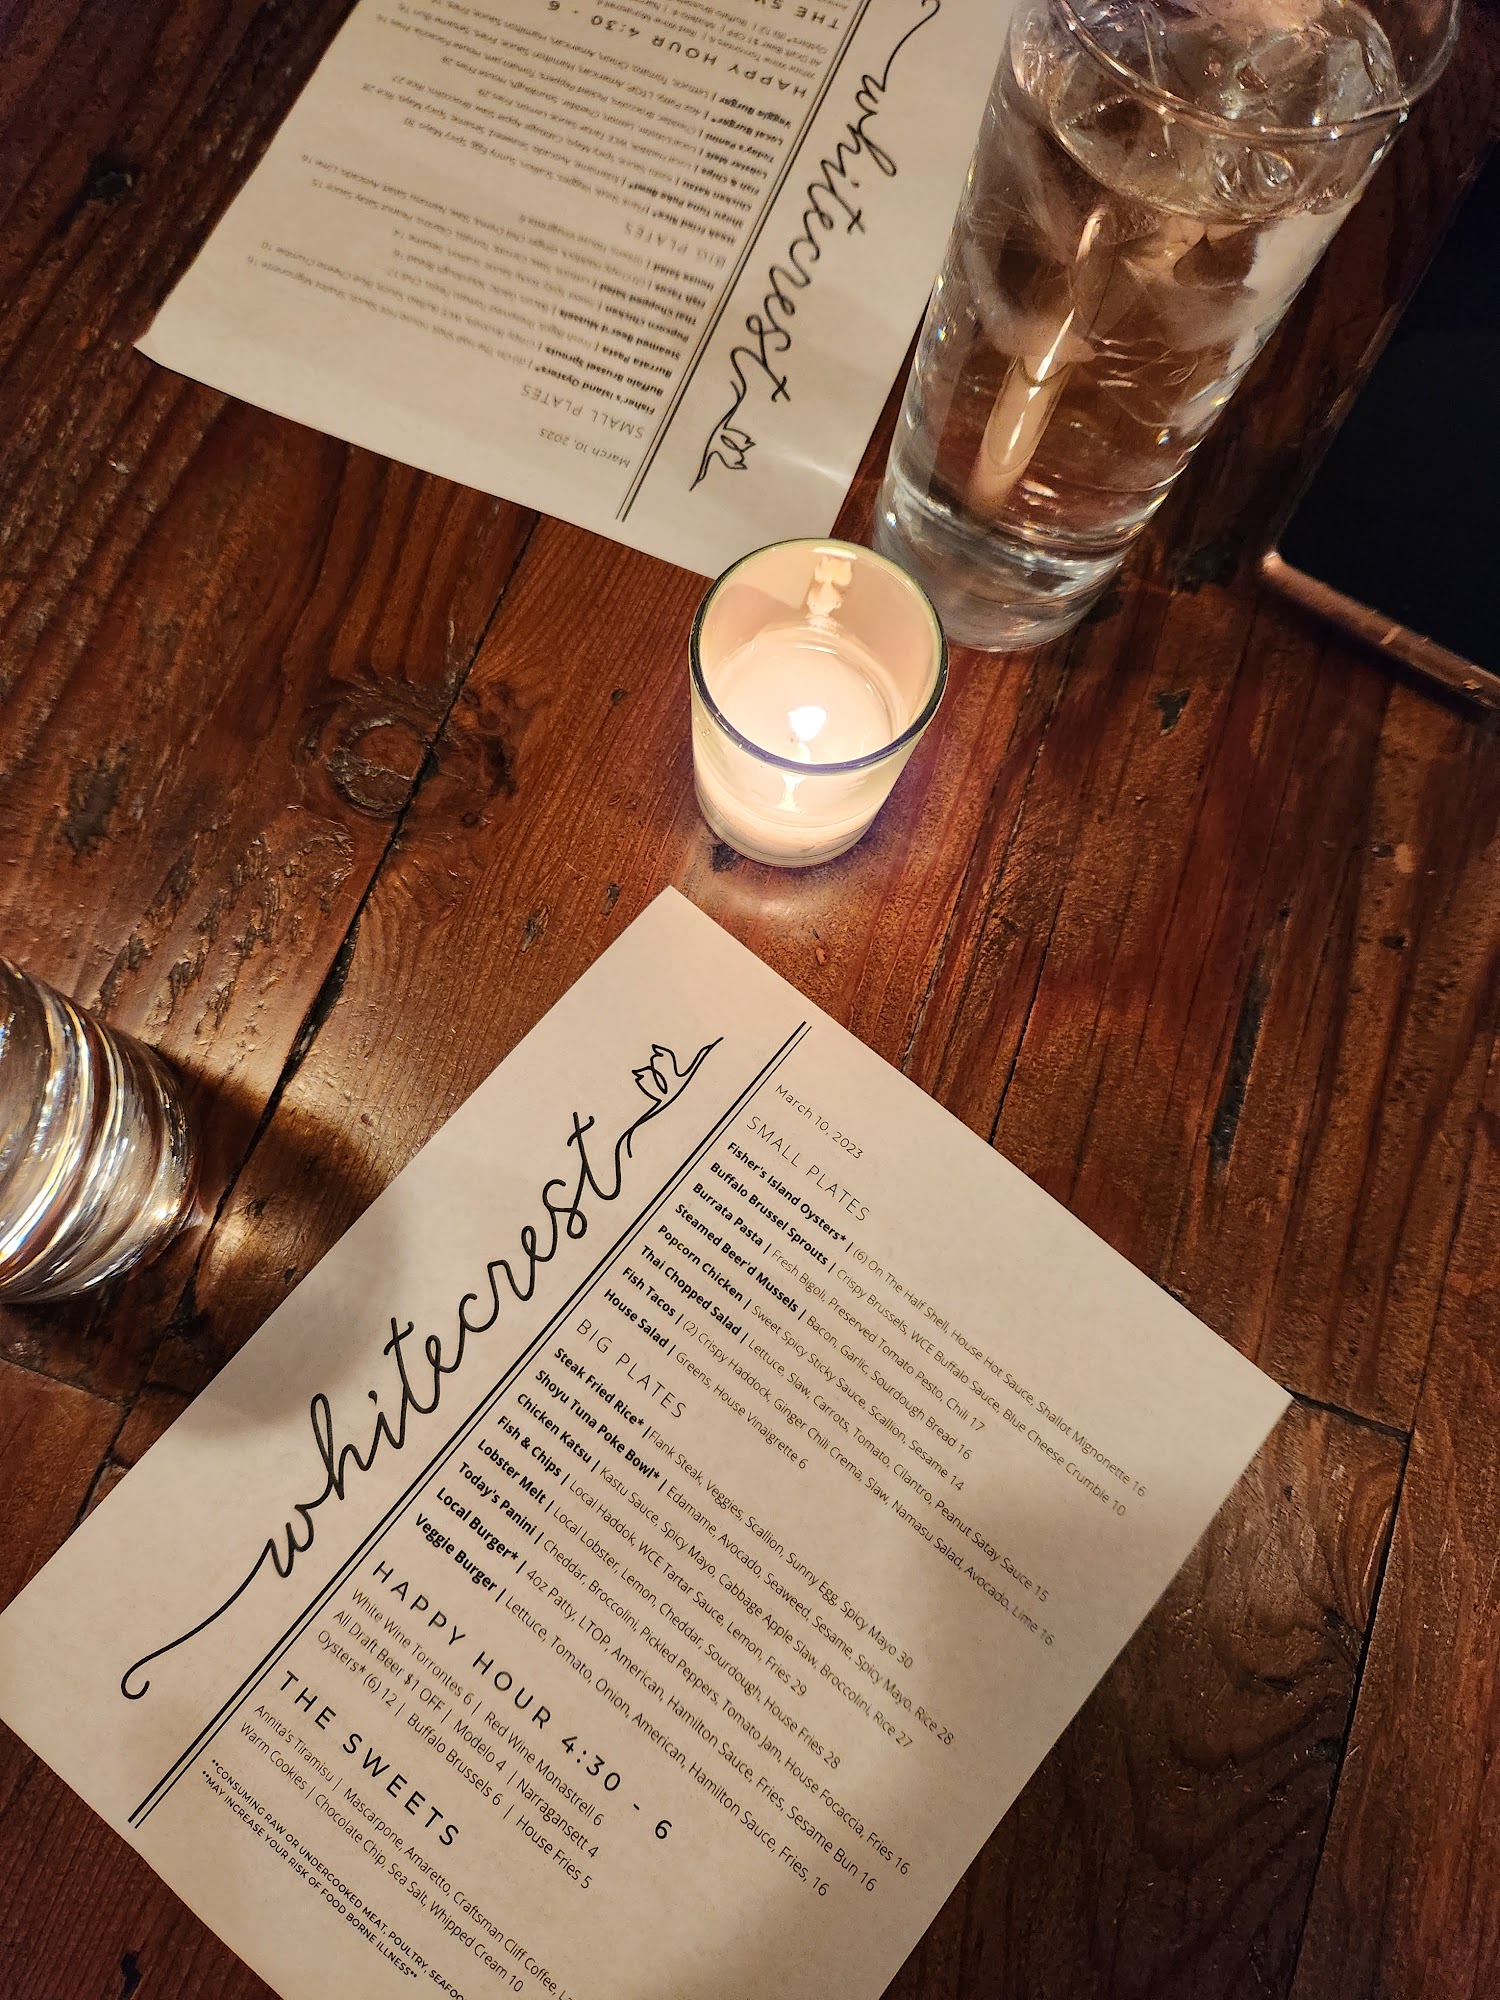 whitecrest
March 10, 2023
SMALL PLATES
Fisher's Island Oysters* | (6) On The Half Shell, House Hot Sauce, Shallot Mignonette 16
Buffalo Brussel Sprouts | Crispy Brussels, WCE Buffalo Sauce, Blue Cheese Crumble 10
Burrata Pasta | Fresh Bigoli, Preserved Tomato Pesto, Chili 17
Steamed Beer'd Mussels | Bacon, Garlic, Sourdough Bread 16
Popcorn Chicken | Sweet Spicy Sticky Sauce, Scallion, Sesame 14
Thai Chopped Salad | Lettuce, Slaw, Carrots, Tomato, Cilantro, Peanut Satay Sauce 15
Fish Tacos | (2) Crispy Haddock, Ginger Chili Crema, Slaw, Namasu Salad, Avocado, Lime 16
House Salad | Greens, House Vinaigrette 6
BIG PLATES
Steak Fried Rice* | Flank Steak, Veggies, Scallion, Sunny Egg, Spicy Mayo 30
Shoyu Tuna Poke Bowl* | Edamame, Avocado, Seaweed, Sesame, Spicy Mayo, Rice 28
Chicken Katsu | Kastu Sauce, Spicy Mayo, Cabbage Apple Slaw, Broccolini, Rice 27
Fish & Chips | Local Haddok, WCE Tartar Sauce, Lemon, Fries 29
Lobster Melt | Local Lobster, Lemon, Cheddar, Sourdough, House Fries 28
Today's Panini | Cheddar, Broccolini, Pickled Peppers, Tomato Jam, House Focaccia, Fries 16
Local Burger* | 4oz Patty, LTOP, American, Hamilton Sauce, Fries, Sesame Bun 16
Veggie Burger | Lettuce, Tomato, Onion, American, Hamilton Sauce, Fries, 16
HAPPY HOUR 4:30 - 6
White Wine Torrontes 6 | Red Wine Monastrell 6
All Draft Beer $1 OFF | Modelo 4 | Narragansett 4
Oysters* (6) 12 | Buffalo Brussels 6 | House Fries 5
THE SWEETS
Annita's Tiramisu | Mascarpone, Amaretto, Craftsman Cliff Coffee,
Warm Cookies | Chocolate Chip, Sea Salt, Whipped Cream 10
**CONSUMING RAW OR UNDERCOOKED MEAT, POULTRY,
**MAY INCREASE YOUR RISK OF FOOD BORNE ILLNESS**
whitecrest
March 10, 2023
SMALL PLATES
Fisher's Island Oysters*
Buffalo Brussel Sprouts
Burrata Pasta
Steamed Beer'd Mussels
Popcorn Chicken
Thai Chopped Salad
Fish Tacos
House Salad
BIG PLATES
Steak Fried Rice*
Shoyu Tuna Poke Bowl*
Chicken Katsu
Fish & Chips
Lobster Melt
Today's Panini
Local Burger*
Veggie Burger
HAPPY HOUR 4:30 - 6